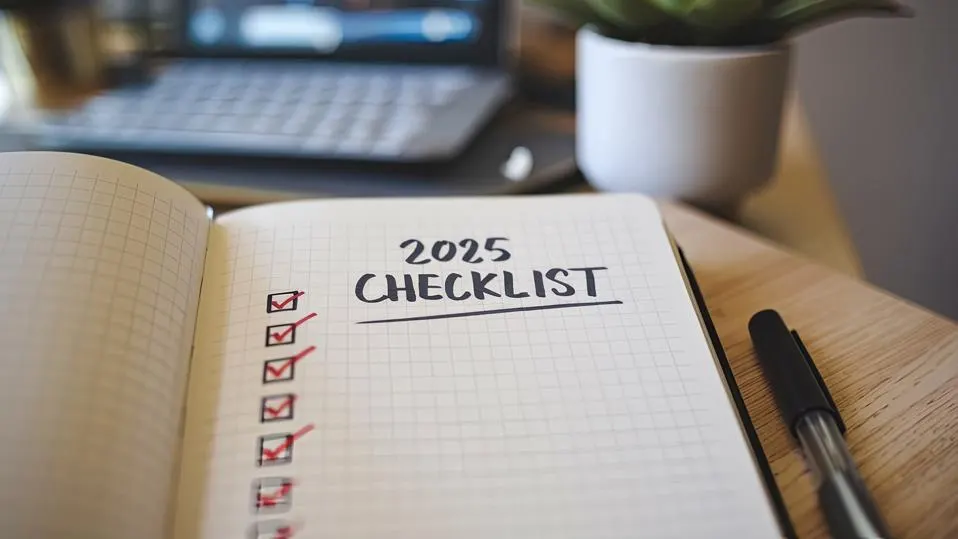 2025
CHECKLIST